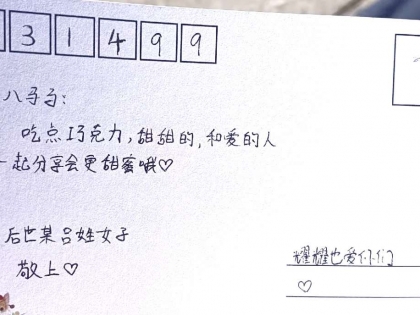 31499
八子子:
吃点巧克力,甜甜的,和爱的人
一起分享会更甜蜜哦♡
后世某吕姓女子
敬上♡
耀耀也爱你们
♡